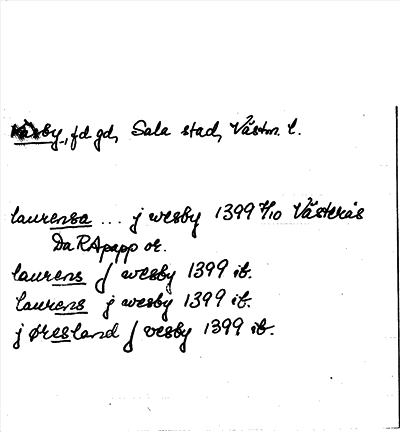 Väsby, fd gd, Sala stad, Västm. l.
laurensa ... j wesby 1399 4/10 Västerås
Da RApapp or.
laurens j wesby 1399 ib.
laurens j wesby 1399 ib.
j øresland j vesby 1399 ib.